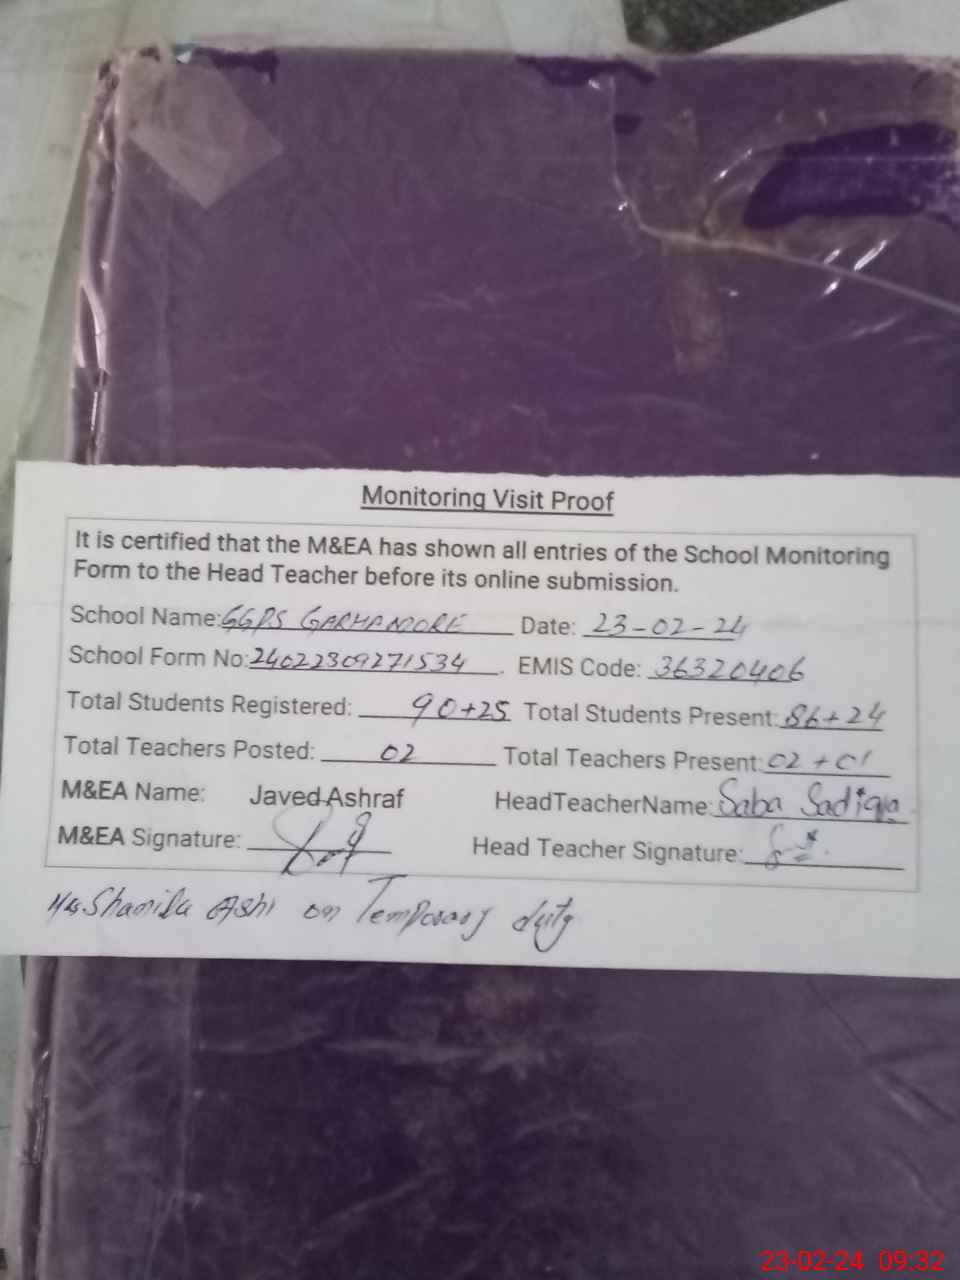 Monitoring Visit Proof
It is certified that the M&EA has shown all entries of the School Monitoring
Form to the Head Teacher before its online submission.
School Name: GGPS GARHAMORE Date: 23-02-24
School Form No: 24022309271534 EMIS Code: 36320406
Total Students Registered: 90+25 Total Students Present: 86+24
Total Teachers Posted: 02 Total Teachers Present: 02+01
M&EA Name: Javed Ashraf HeadTeacherName: Saba Sadiqa
M&EA Signature: Head Teacher Signature:
on Temporary duty
23-02-24 09:32